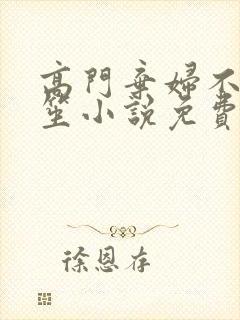 高門棄婦不
笙小說免費
徐恩存